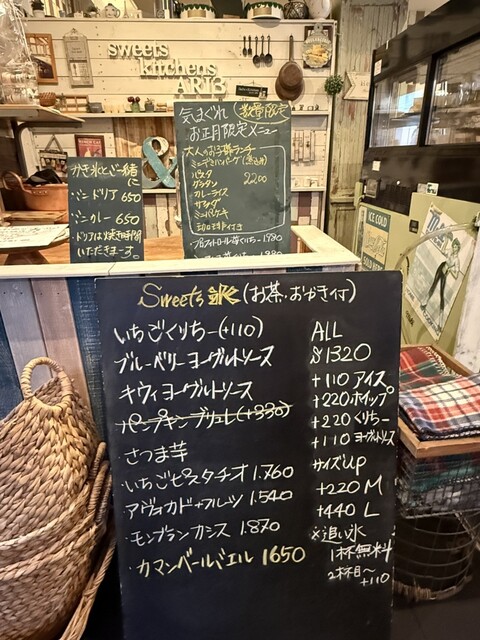 sweets
kitchens
ARI3
気まぐれ(数量限定)
お正月限定メニュー
大人のお子様ランチ
パスタ
グラタン
カレーライス
サラダ
2200
かき氷とご一緒に
・ミニドリア 650
・ミニカレー 650
・ドリアは焼き時間
いただきまーす。
ICE COLD
&
Sweets氷(お茶・おかき付)
いちごくりちー(+110)
ブルーベリーヨーグルトソース
キウイヨーグルトソース
パンプキンブリュレ(+330)
さつま芋
いちごピスタチオ 1.760
アヴォカド+フルーツ 1.540
モンブランカシス 1.870
カマンベールバエル 1650
ALL
$1320
+110 アイス
+220ホイップ
+220くりちー
+110ヨーグルトソース
サイズup
+220 M
+440 L
※追い氷
1杯無料
2杯目〜
+110